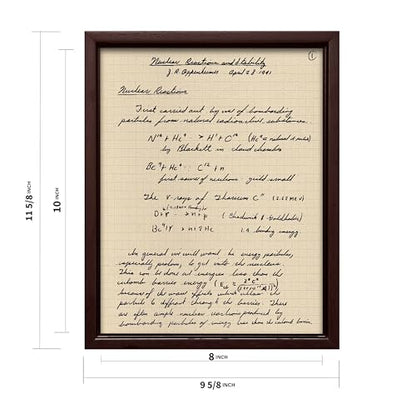 ①
Nuclear Reactions and Stability
J. R. Oppenheimer April 28 1941
Nuclear Reactions
First carried out by use of bombarding
particles from natural radioactive substances.
N¹⁴ + He⁴ → H¹ + O¹⁷ (He⁴ = natural α rays)
by Blackett in cloud chamber
Be⁹ + He⁴ → C¹² + n
first source of neutrons yield small
The γ rays of Thorium C" (2.62 MeV)
D + γ → n + p (Chadwick & Goldhaber)
Be⁹ + γ → n + 2He binding energy
In general we will want the energy particles,
especially protons, to get into the nucleus.
This can be done at energies less than the
coulomb barrier energy
because of the wave effects which allow the
particle to diffract through the barrier. There
are often simple nuclear reactions produced by
bombarding particles of energy less than the coulomb barrier.
11 5/8 INCH
10 INCH
8 INCH
9 5/8 INCH